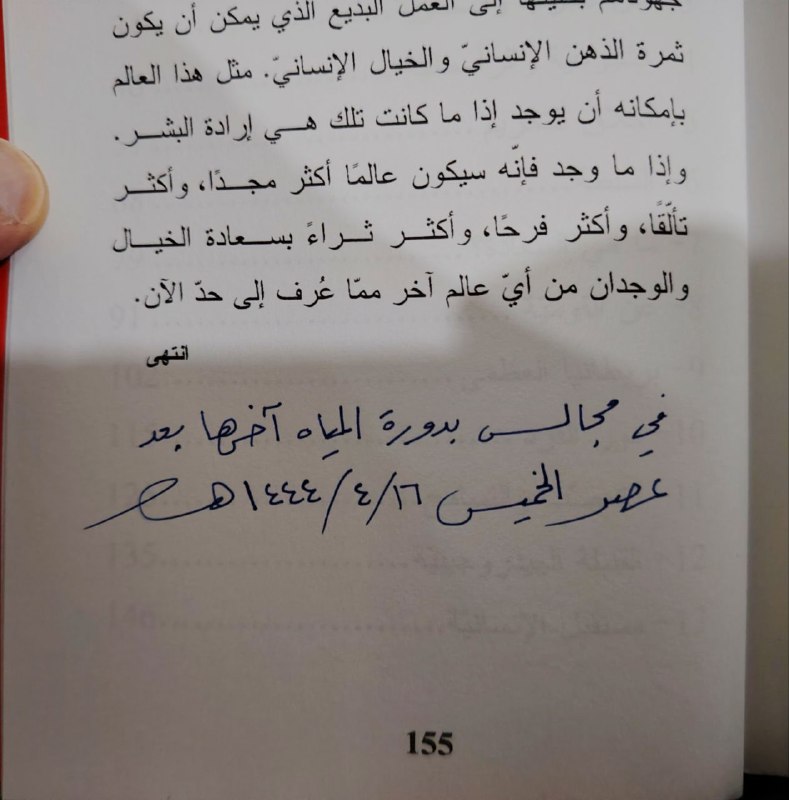 جهودهم بكليتها إلى العمل البديع الذي يمكن أن يكون
ثمرة الذهن الإنسانيّ والخيال الإنسانيّ. مثل هذا العالم
بإمكانه أن يوجد إذا ما كانت تلك هي إرادة البشر.
وإذا ما وجد فإنّه سيكون عالمًا أكثر مجدًا، وأكثر
تألّقًا، وأكثر فرحًا، وأكثر ثراءً بسعادة الخيال
والوجدان من أيّ عالم آخر ممّا عُرف إلى حدّ الآن.
انتهى
في مجالس بدورة المياه آخرها بعد
عصر الخميس ١٦/٤/١٤٤٤هـ
155